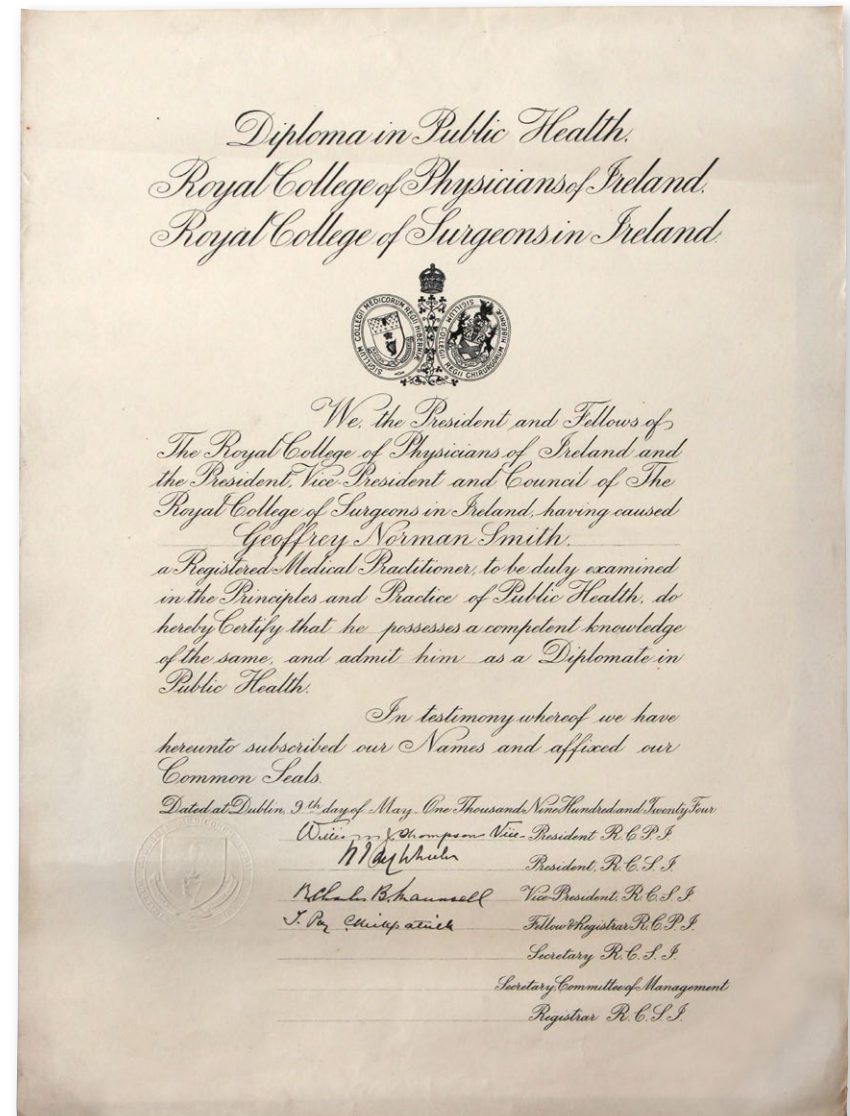 Diploma in Public Health.
Royal College of Physicians of Ireland.
Royal College of Surgeons in Ireland.
SIGILLUM COLLEGII MEDICORUM REGII HIBERNIÆ
SIGILLUM COLLEGII REGII CHIRURGORUM HIBERNIÆ
We, the President and Fellows of
The Royal College of Physicians of Ireland and
the President, Vice-President and Council of The
Royal College of Surgeons in Ireland, having caused
Geoffrey Norman Smith,
a Registered Medical Practitioner, to be duly examined
in the Principles and Practice of Public Health, do
hereby Certify that he possesses a competent knowledge
of the same, and admit him as a Diplomate in
Public Health.
In testimony whereof we have
hereunto subscribed our Names and affixed our
Common Seals.
Dated at Dublin, 9th day of May One Thousand Nine Hundred and Twenty Four
William J. Thompson Vice-President R.C.P.I.
President, R.C.S.I.
Charles B. Maunsell Vice-President, R.C.S.I.
T. Percy Kirkpatrick Fellow & Registrar R.C.P.I.
Secretary R.C.S.I.
Secretary, Committee of Management
Registrar R.C.S.I.